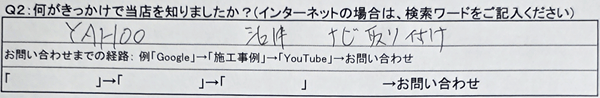 Q2:何がきっかけで当店を知りましたか?(インターネットの場合は、検索ワードをご記入ください)
YAHOO 沼津 ナビ取り付け
お問い合わせまでの経路: 例「Google」→「施工事例」→「YouTube」→お問い合わせ
「　　　　」→「　　　　」→「　　　　」　　　　→お問い合わせ